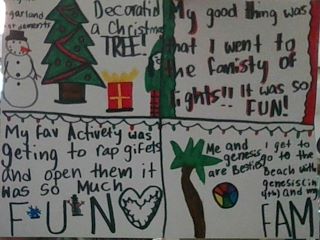 garland
Decoratid
a Christmas
TREE!
My good thing was
that I went to
the fanisty of
lights!! It was so
FUN!
My fav Activety was
geting to rap gifets
and open them it
was so Much
FUN
Me and
genesis
are Besties!
I get to
go to the
beach with
genesis(in
4th) and my
FAM